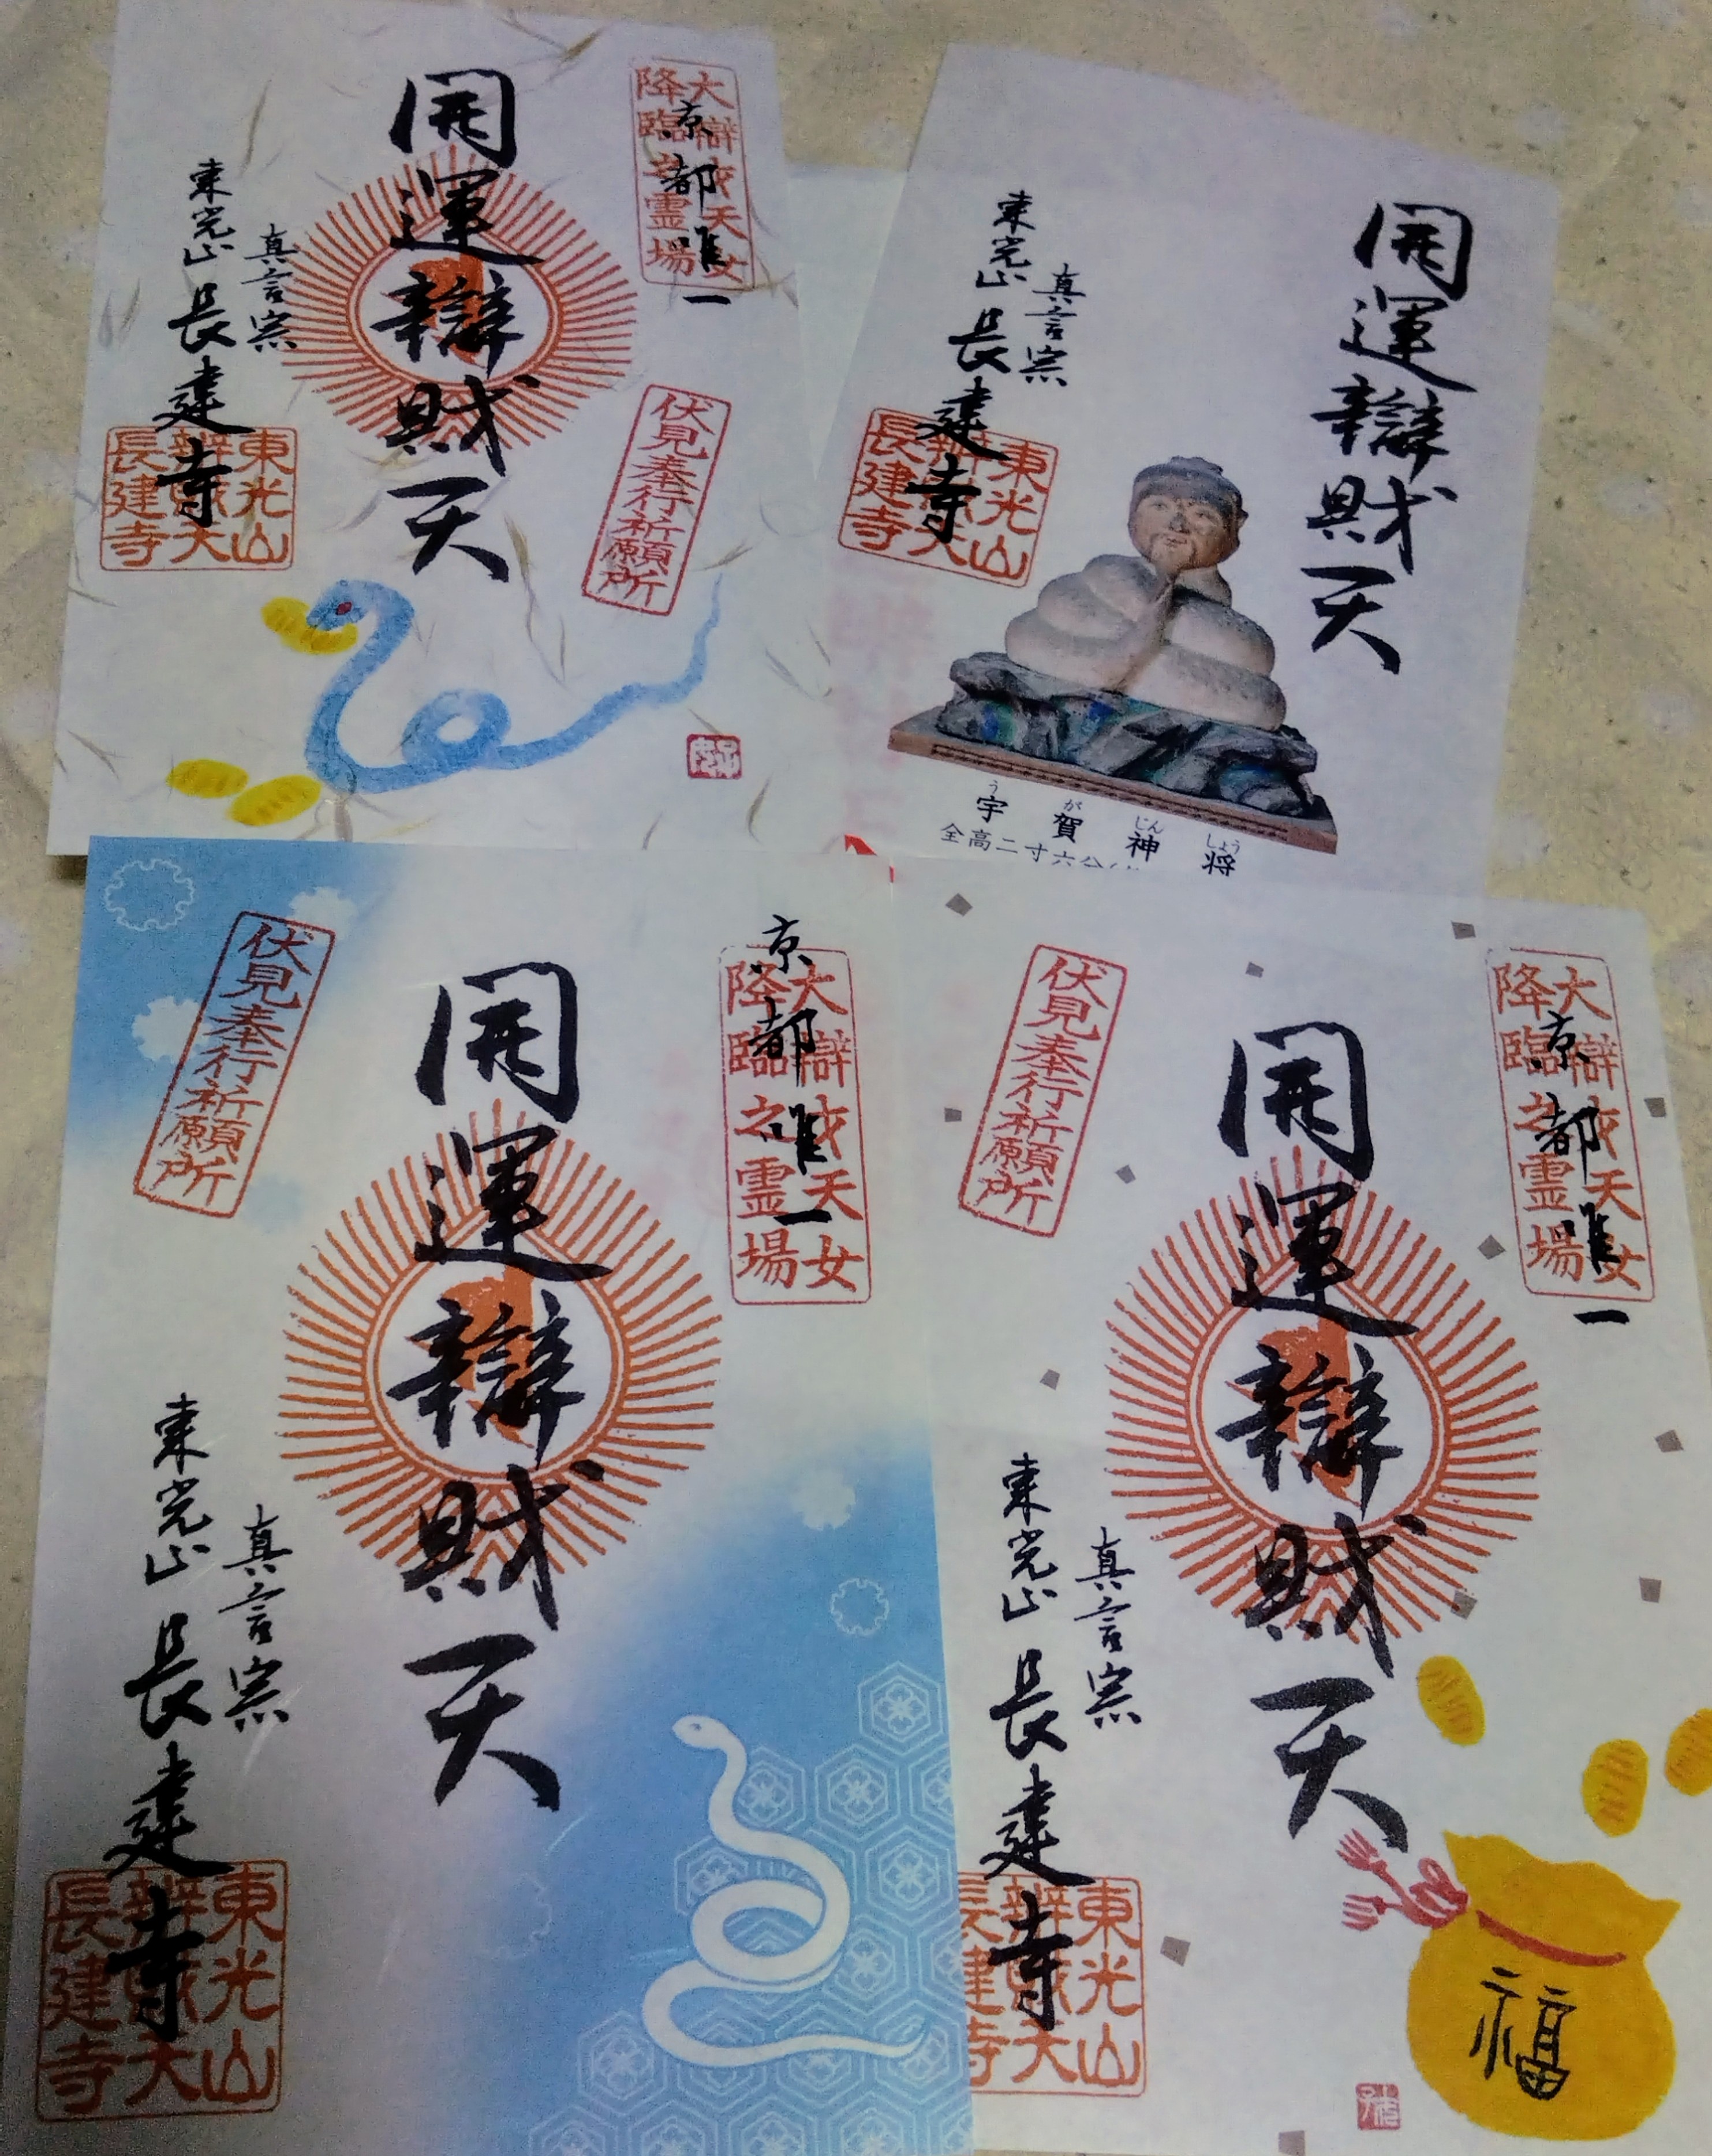 大辯才天女
降臨之霊場
京都唯一
開運辯財天
伏見奉行祈願所
真言宗
東光山 長建寺
東光山
長建寺
開運辯財天
真言宗
東光山 長建寺
東光山
長建寺
うがじんしょう
宇賀神将
全高二寸六分
大辯才天女
降臨之霊場
京都唯一
開運辯財天
伏見奉行祈願所
真言宗
東光山 長建寺
東光山
長建寺
大辯才天女
降臨之霊場
京都唯一
開運辯財天
伏見奉行祈願所
真言宗
東光山 長建寺
東光山
長建寺
福